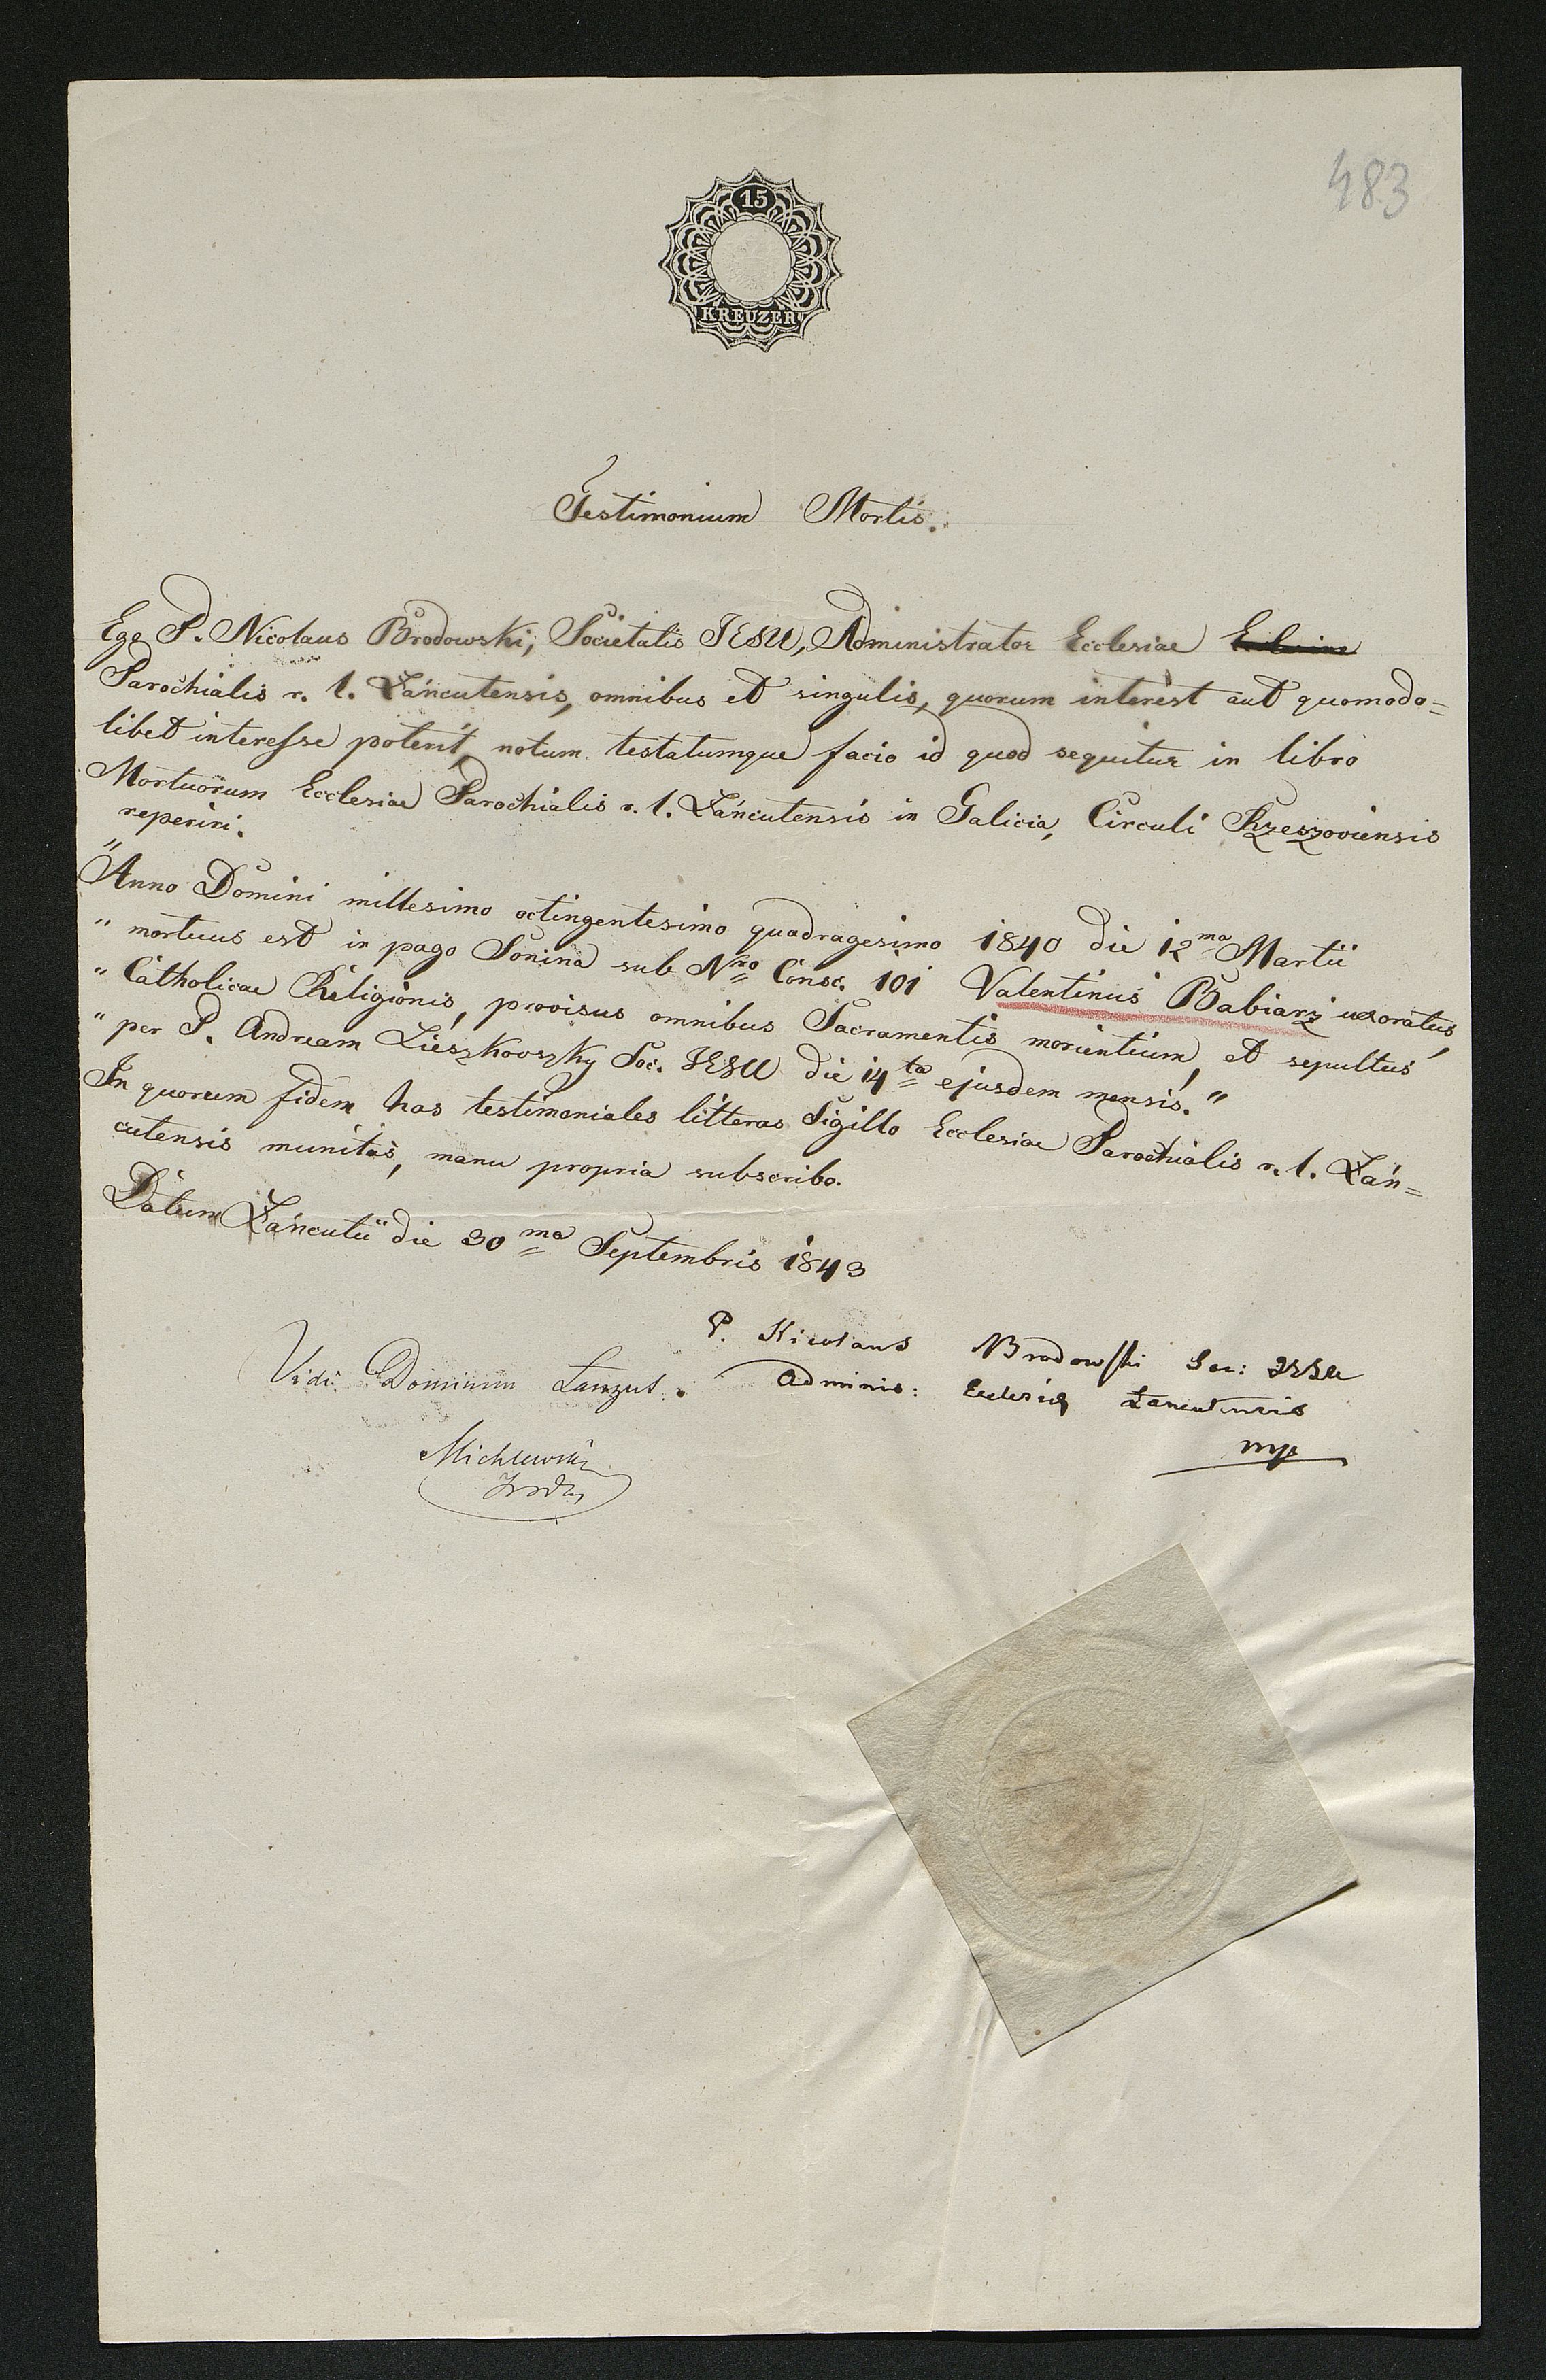 483
15
KREUZER
Testimonium Mortis.
Ego P. Nicolaus Brodowski, Societatis JESU, Administrator Ecclesiae
Parochialis r. l. Łańcutensis, omnibus et singulis, quorum interest aut quomodo=
libet interesse poterit, notum testatumque facio id quod sequitur in libro
Mortuorum Ecclesiae Parochialis r. l. Łańcutensis in Galicia, Circuli Rzeszoviensis
reperiri.
"Anno Domini millesimo octingentesimo quadragesimo 1840 die 12ma Martii
" mortuus est in pago Sonina sub Nro Consc. 101 Valentinus Babiarz uxoratus,
" Catholicae Religionis, provisus omnibus Sacramentis morientium, et sepultus
" per P. Andream Lieszkovszky Soc. JESU die 14ta ejusdem mensis."
In quorum fidem has testimoniales litteras Sigillo Ecclesiae Parochialis r. l. Łań=
cutensis munitas, manu propria subscribo.
Datum Łańcutii die 30ma Septembris 1843
P. Nicolaus Brodowski Soc: JESU
Vidi Dominium Lanzut.
Adminis: Ecclesiae Łancutensis
mp